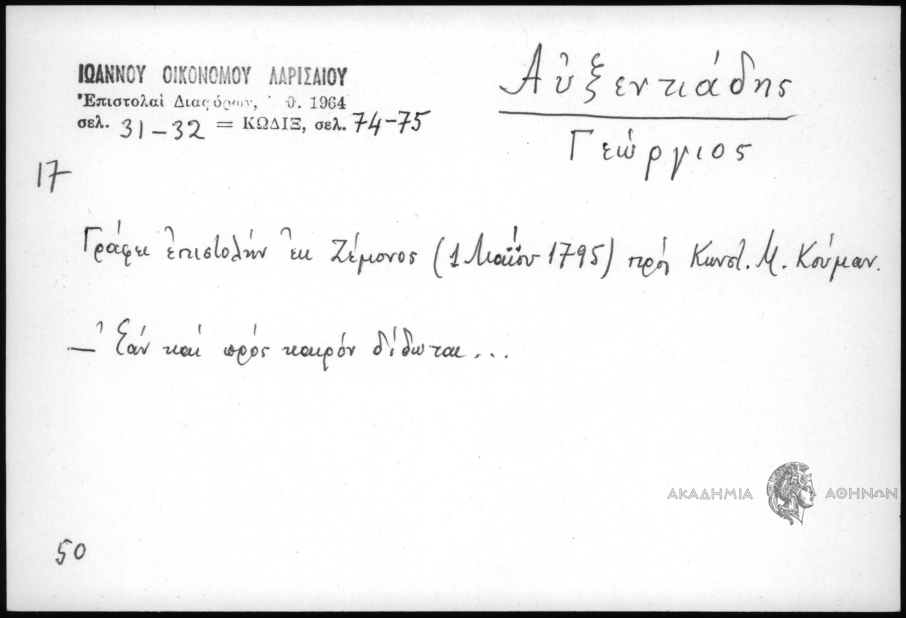 ΙΩΑΝΝΟΥ ΟΙΚΟΝΟΜΟΥ ΛΑΡΙΣΑΙΟΥ
Ἐπιστολαὶ Διαφόρων, 1964
σελ. 31-32 = ΚΩΔΙΞ, σελ. 74-75
Αὐξεντιάδης
Γεώργιος
17
Γράφει ἐπιστολήν ἐκ Ζέμονος (1 Μαΐου 1795) πρός Κωνστ. Μ. Κούμαν.
— Ἐάν καί πρός καιρόν δίδωται...
ΑΚΑΔΗΜΙΑ ΑΘΗΝΩΝ
50